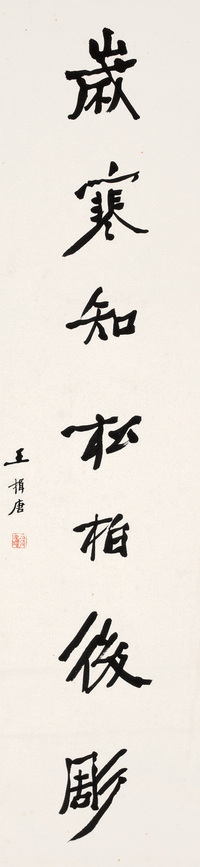 歲寒知松柏後彫
王揖唐